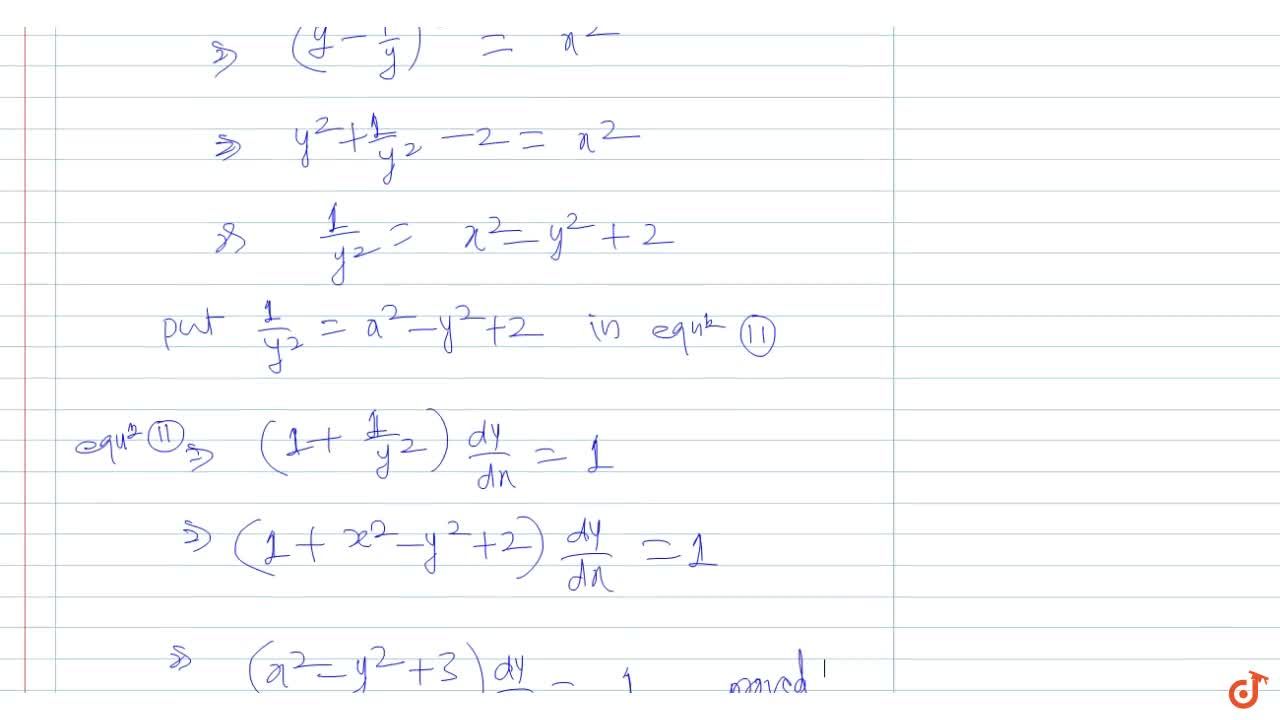 ⇒ (y − 1/y) = x²
⇒ y² + 1/y² − 2 = x²
⇒ 1/y² = x² − y² + 2
put 1/y² = x² − y² + 2 in equⁿ (11)
equⁿ (11) ⇒ (1 + 1/y²) dy/dx = 1
⇒ (1 + x² − y² + 2) dy/dx = 1
⇒ (x² − y² + 3) dy/ = 1 proved